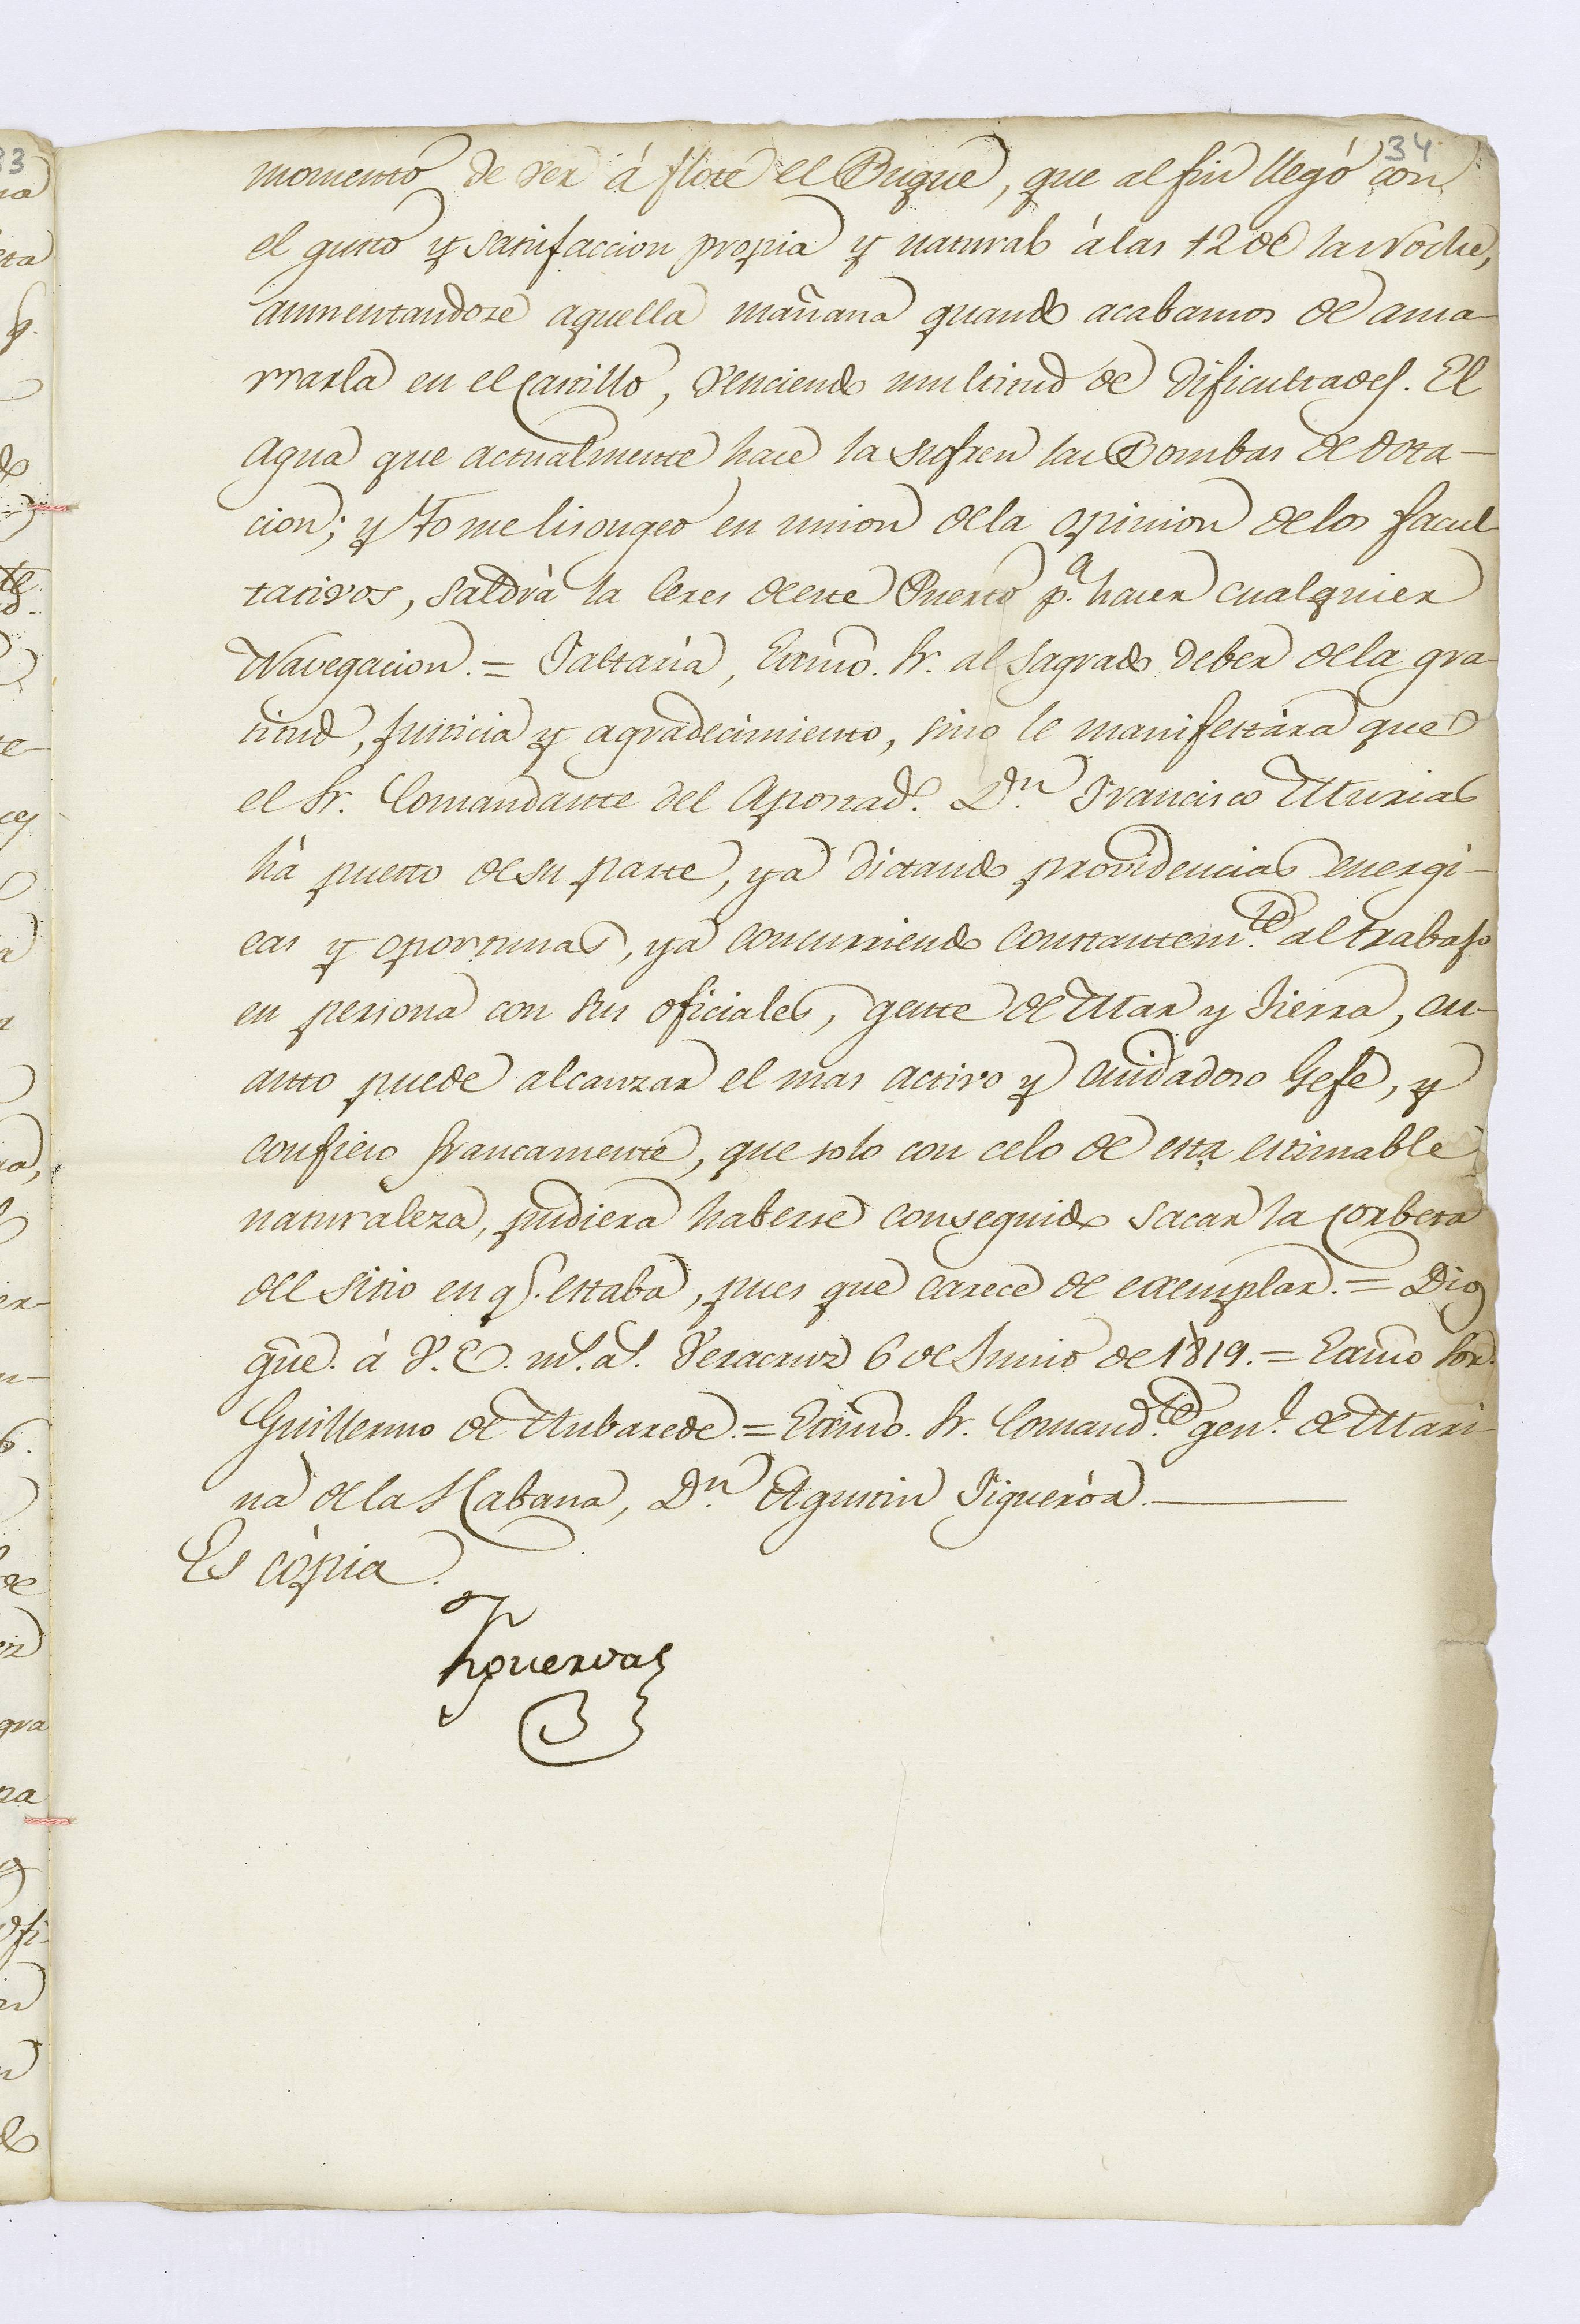 34
momento de ver á flote el Buque, que al fin llegó con
el gusto y satisfaccion propia y natural á las 12 de la Noche,
aumentandose aquella mañana quando acabamos de ama-
rrarla en el Castillo, venciendo multitud de Dificultades. El
agua que actualmente hace la sufren las Bombas de dota-
cion; y Yo me lisongeo en union de la opinion de los facul
tativos, saldrá la Ceres de este Puerto p.ª hacer cualquier
Navegacion. = Faltaria, Exmo. Sr. al sagrado deber de la gra-
titud, Justicia y agradecimiento, sino le manifestára que
el Sr. Comandante del Apostad.º D.n Francisco Murias
há puesto de su parte, ya dictando providencias energi-
cas y oportunas, ya concurriendo constantem.te al trabajo
en persona con sus oficiales, gente de Mar y Tierra, cu-
anto puede alcanzar el mas activo y cuidadoso Gefe, y
confieso francamente, que solo con celo de esta estimable
naturaleza, pudiera haberse conseguido sacar la corbeta
del sitio en q.e estaba, pues que carece de exemplar. = Dios
gūe. á V. E. m.s a.s Veracruz 6 de Junio de 1819. = Exmo Sor.
Guillermo de Aubarede. = Exmo. Sr. Comand.te gen.l de Mari-
na de la Habana, D.n Agustin Figueróa.
Es cópia.
Figueroa